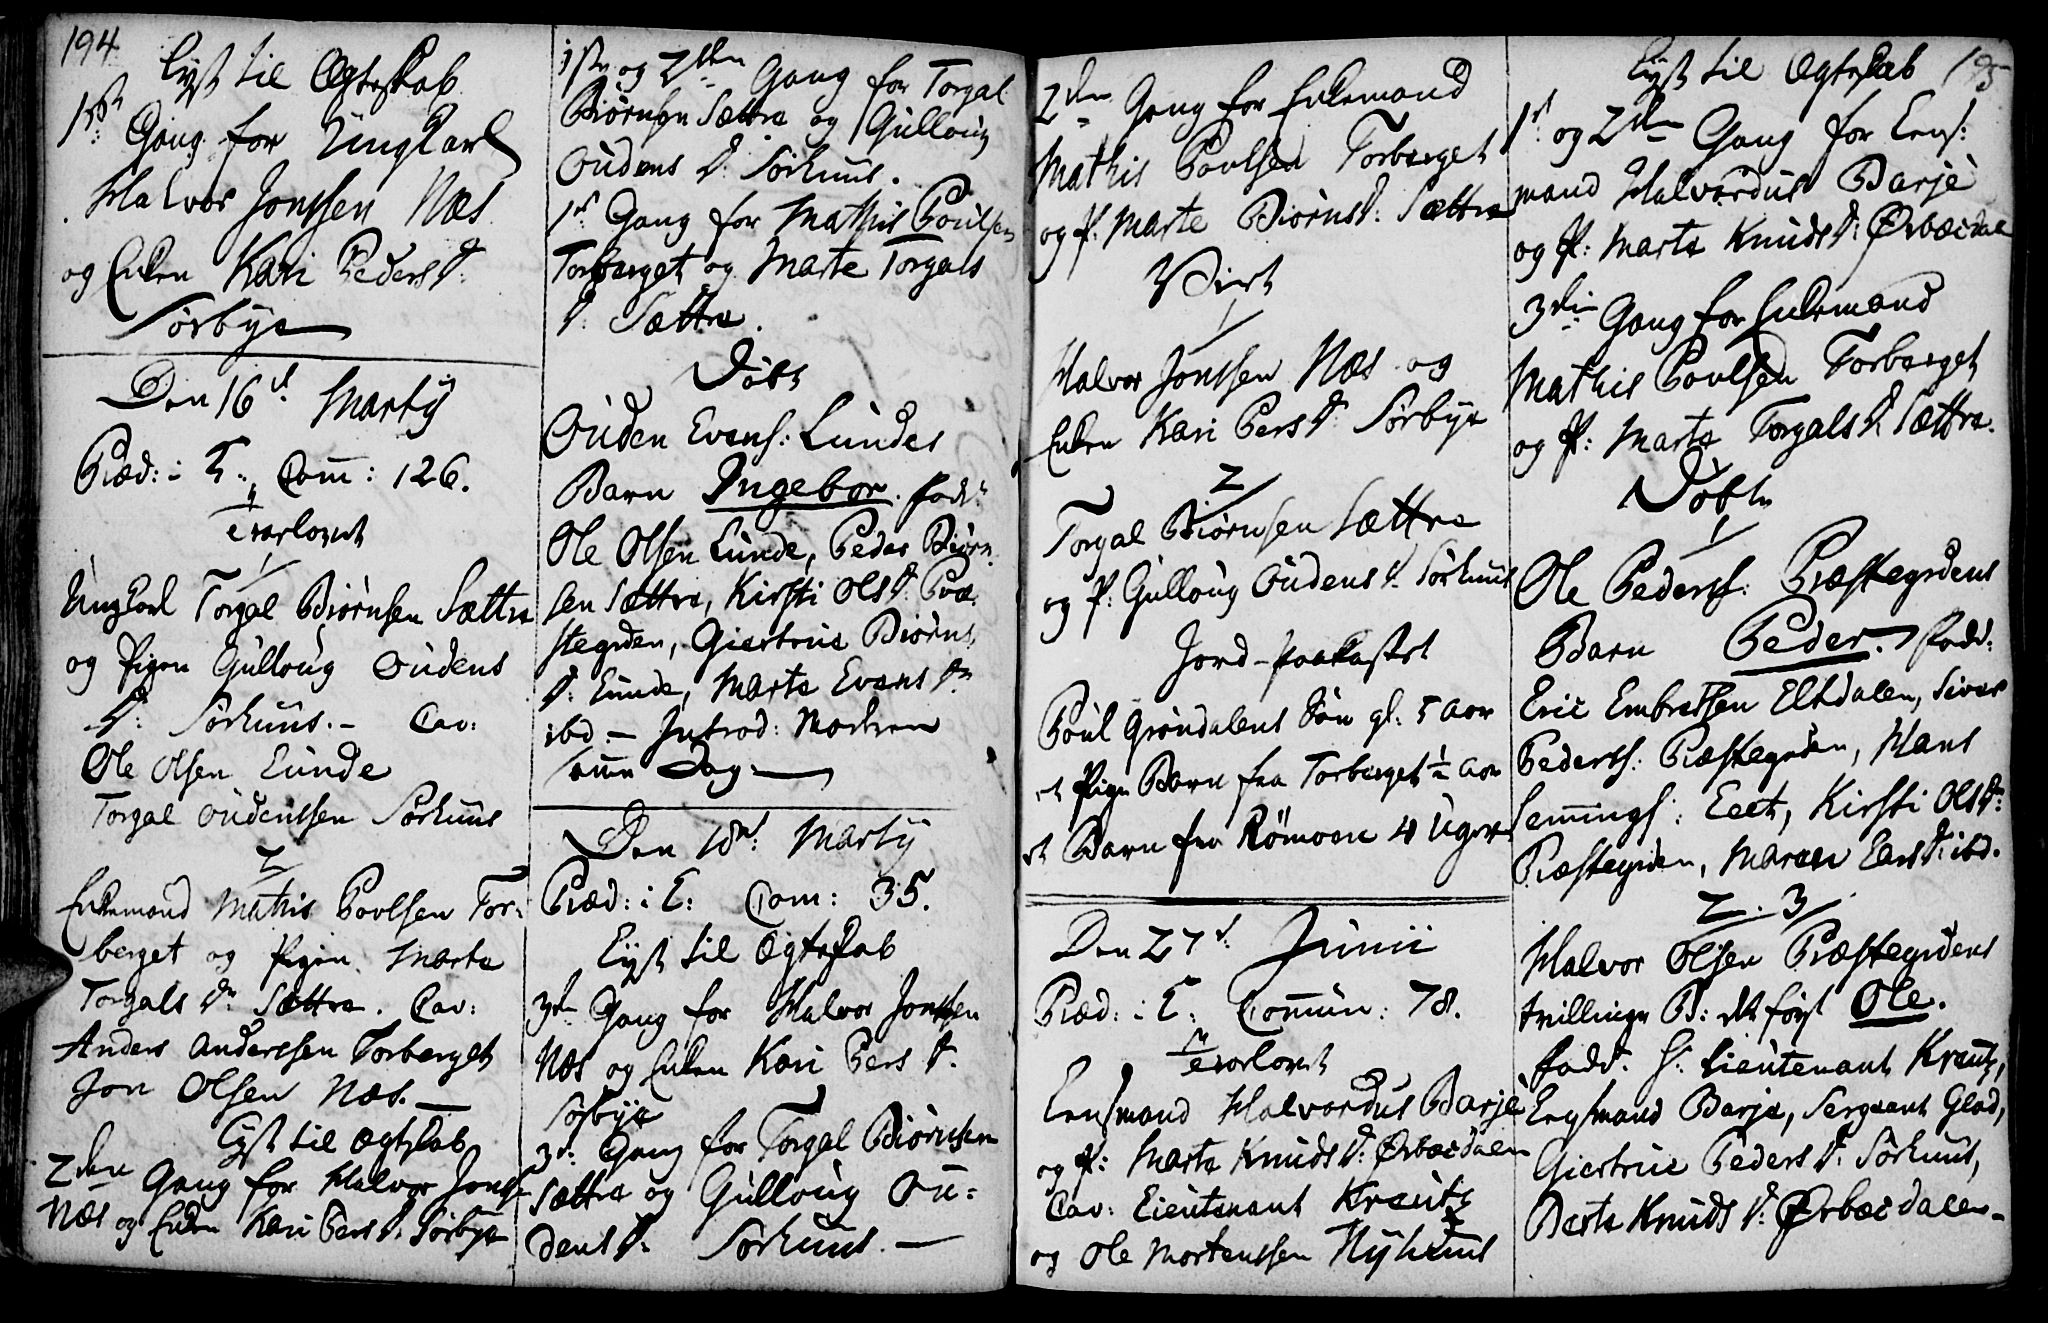 194
Lyst til Ægteskab
1ste Gang for Ungkarl
Halvor Jonssen Næs
og Enken Kari Peders D:
Sørbye
Den 16d: Martij
Præd: i T: Com̄: 126.
Trolovet
1
Ungkarl Torgal Biørnsen Sættre
og Pigen Gulloug Oudens
D: Sørhuus. - Cav:
Ole Olsen Lunde
Torgal Oudenssen Sørhuus
2
Enkemand Mathis Povlsen Tor-
berget og Pigen Marte
Torgals Dr Sættre. Cav:
Anders Anderssen Torberget
Jon Olsen Næs. —
Lyst til Ægteskab
2den Gang for Halvor Jonss:
Næs og Enken Kari Pers D: Sørbye
1ste og 2den Gang for Torgal
Biørnsen Sættre og Gulloug
Oudens D: Sørhuus.
1st Gang for Mathis Poulsen
Torberget og Marte Torgals
D: Sættre.
Døbt
Ouden Evens: Lundes
Barn Ingebor. fad:
Ole Olsen Lunde, Peder Biørn-
sen Sættre, Kirsti Ols D: Præ-
stegrden, Giertrue Biørns
D: Lunde, Marte Evens Dr
ibd — Introd: Modren
samme Dag. —
Den 18d: Martij
Præd: i T: Com: 35.
Lyst til Ægteskab
3die Gang for Halvor Jonssen
Næs og Enken Kari Pers D:
Sørbye
3d: Gang for Torgal Biørnsen
Sættre og Gulloug Ou-
dens D: Sørhuus. —
2den Gang for Enkemand
Mathis Povlsen Torberget
og P: Marte Biørns D: Sættre
Viet
1
Halvor Jonssen Næs og
Enken Kari Pers D: Sørbye
2
Torgal Biørnsen Sættre
og P: Gulloug Oudens D: Sørhuus
Jord-paakastet
Poul Grøndalens Søn gl: 5 Aar
et Pige Barn fra Torberget ½ Aar
et Barn fra Rømoen 4 Uger
Den 27d: Junii
Præd: i T: Com̄un: 78.
Trolovet
Lensmand Halvordus Barjè
og P: Marte Knuds D: Ørbæcdalen
Cav: Lieutenant Krautz
og Ole Mortenssen Nyhuus
195
Lyst til Ægteskab
1st og 2den Gang for Lens:
mand Halvordus Barjè
og P: Marte Knuds D: Ørbæcdal
3die Gang for Enkemand
Mathis Povlsen Torberget
og P: Marte Torgals D: Sættre.
Døbte
1
Ole Peders: Præstegrdens
Barn Peder. fadd:
Eric Embretsen Eltdalen, Siver
Peders: Præstegrden, Hans
Hem̄ings: Leet, Kirsti Ols Dr:
Præstegrden, Maren Lars D: ibd.
2. 3
Halvor Olsen Præstegrdens
tvillinge B: det først Ole.
fadd: Hr: Lieutenant Krautz,
Lensmand Barje, Sergeant Glad,
Giertrue Peders D: Sørhuus,
Berte Knuds D: Ørbæcdalen-